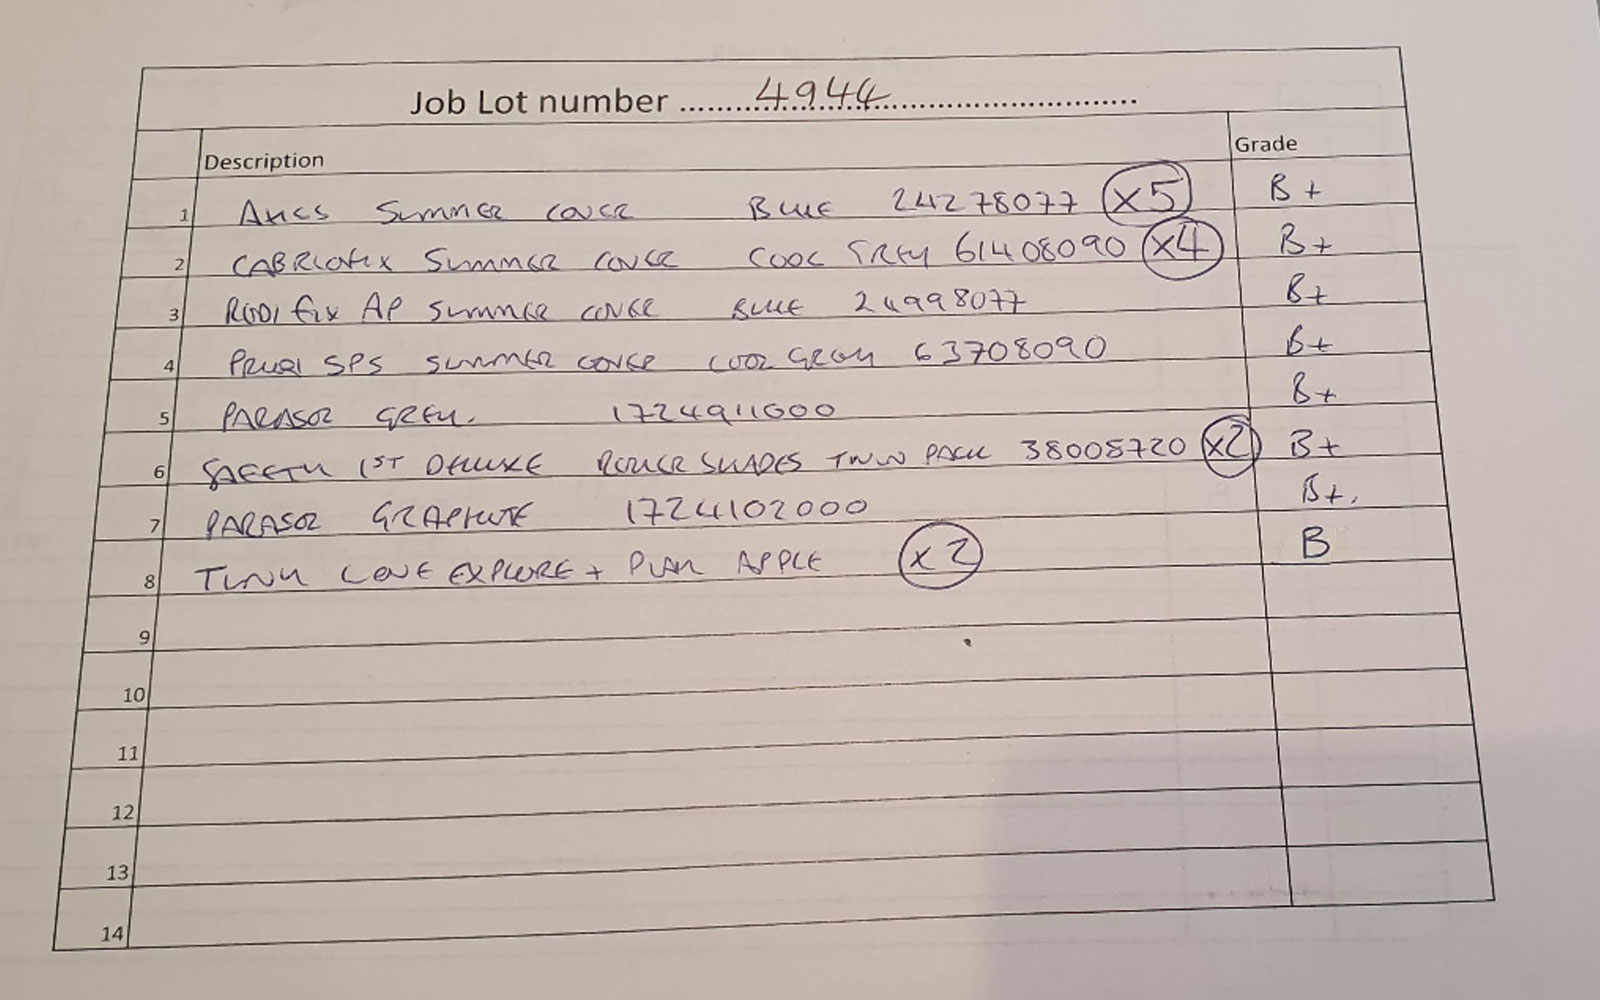 Job Lot number ....4944....
Description Grade
1 AXISS SUMMER COVER BLUE 24278077 x5 B+
2 CABRIOFIX SUMMER COVER COOL GREY 61408090 x4 B+
3 RODI fix AP SUMMER COVER BLUE 24998077 B+
4 PEARL SPS SUMMER COVER COOL GREY 63708090 B+
5 PARASOL GREY. 1724911000 B+
6 SAFETY 1ST DELUXE ROLLER SHADES TWIN PACK 38005720 x2 B+
7 PARASOL GRAPHITE 1724102000 B+.
8 TINY LOVE EXPLORE + PLAY APPLE x2 B
9
10
11
12
13
14